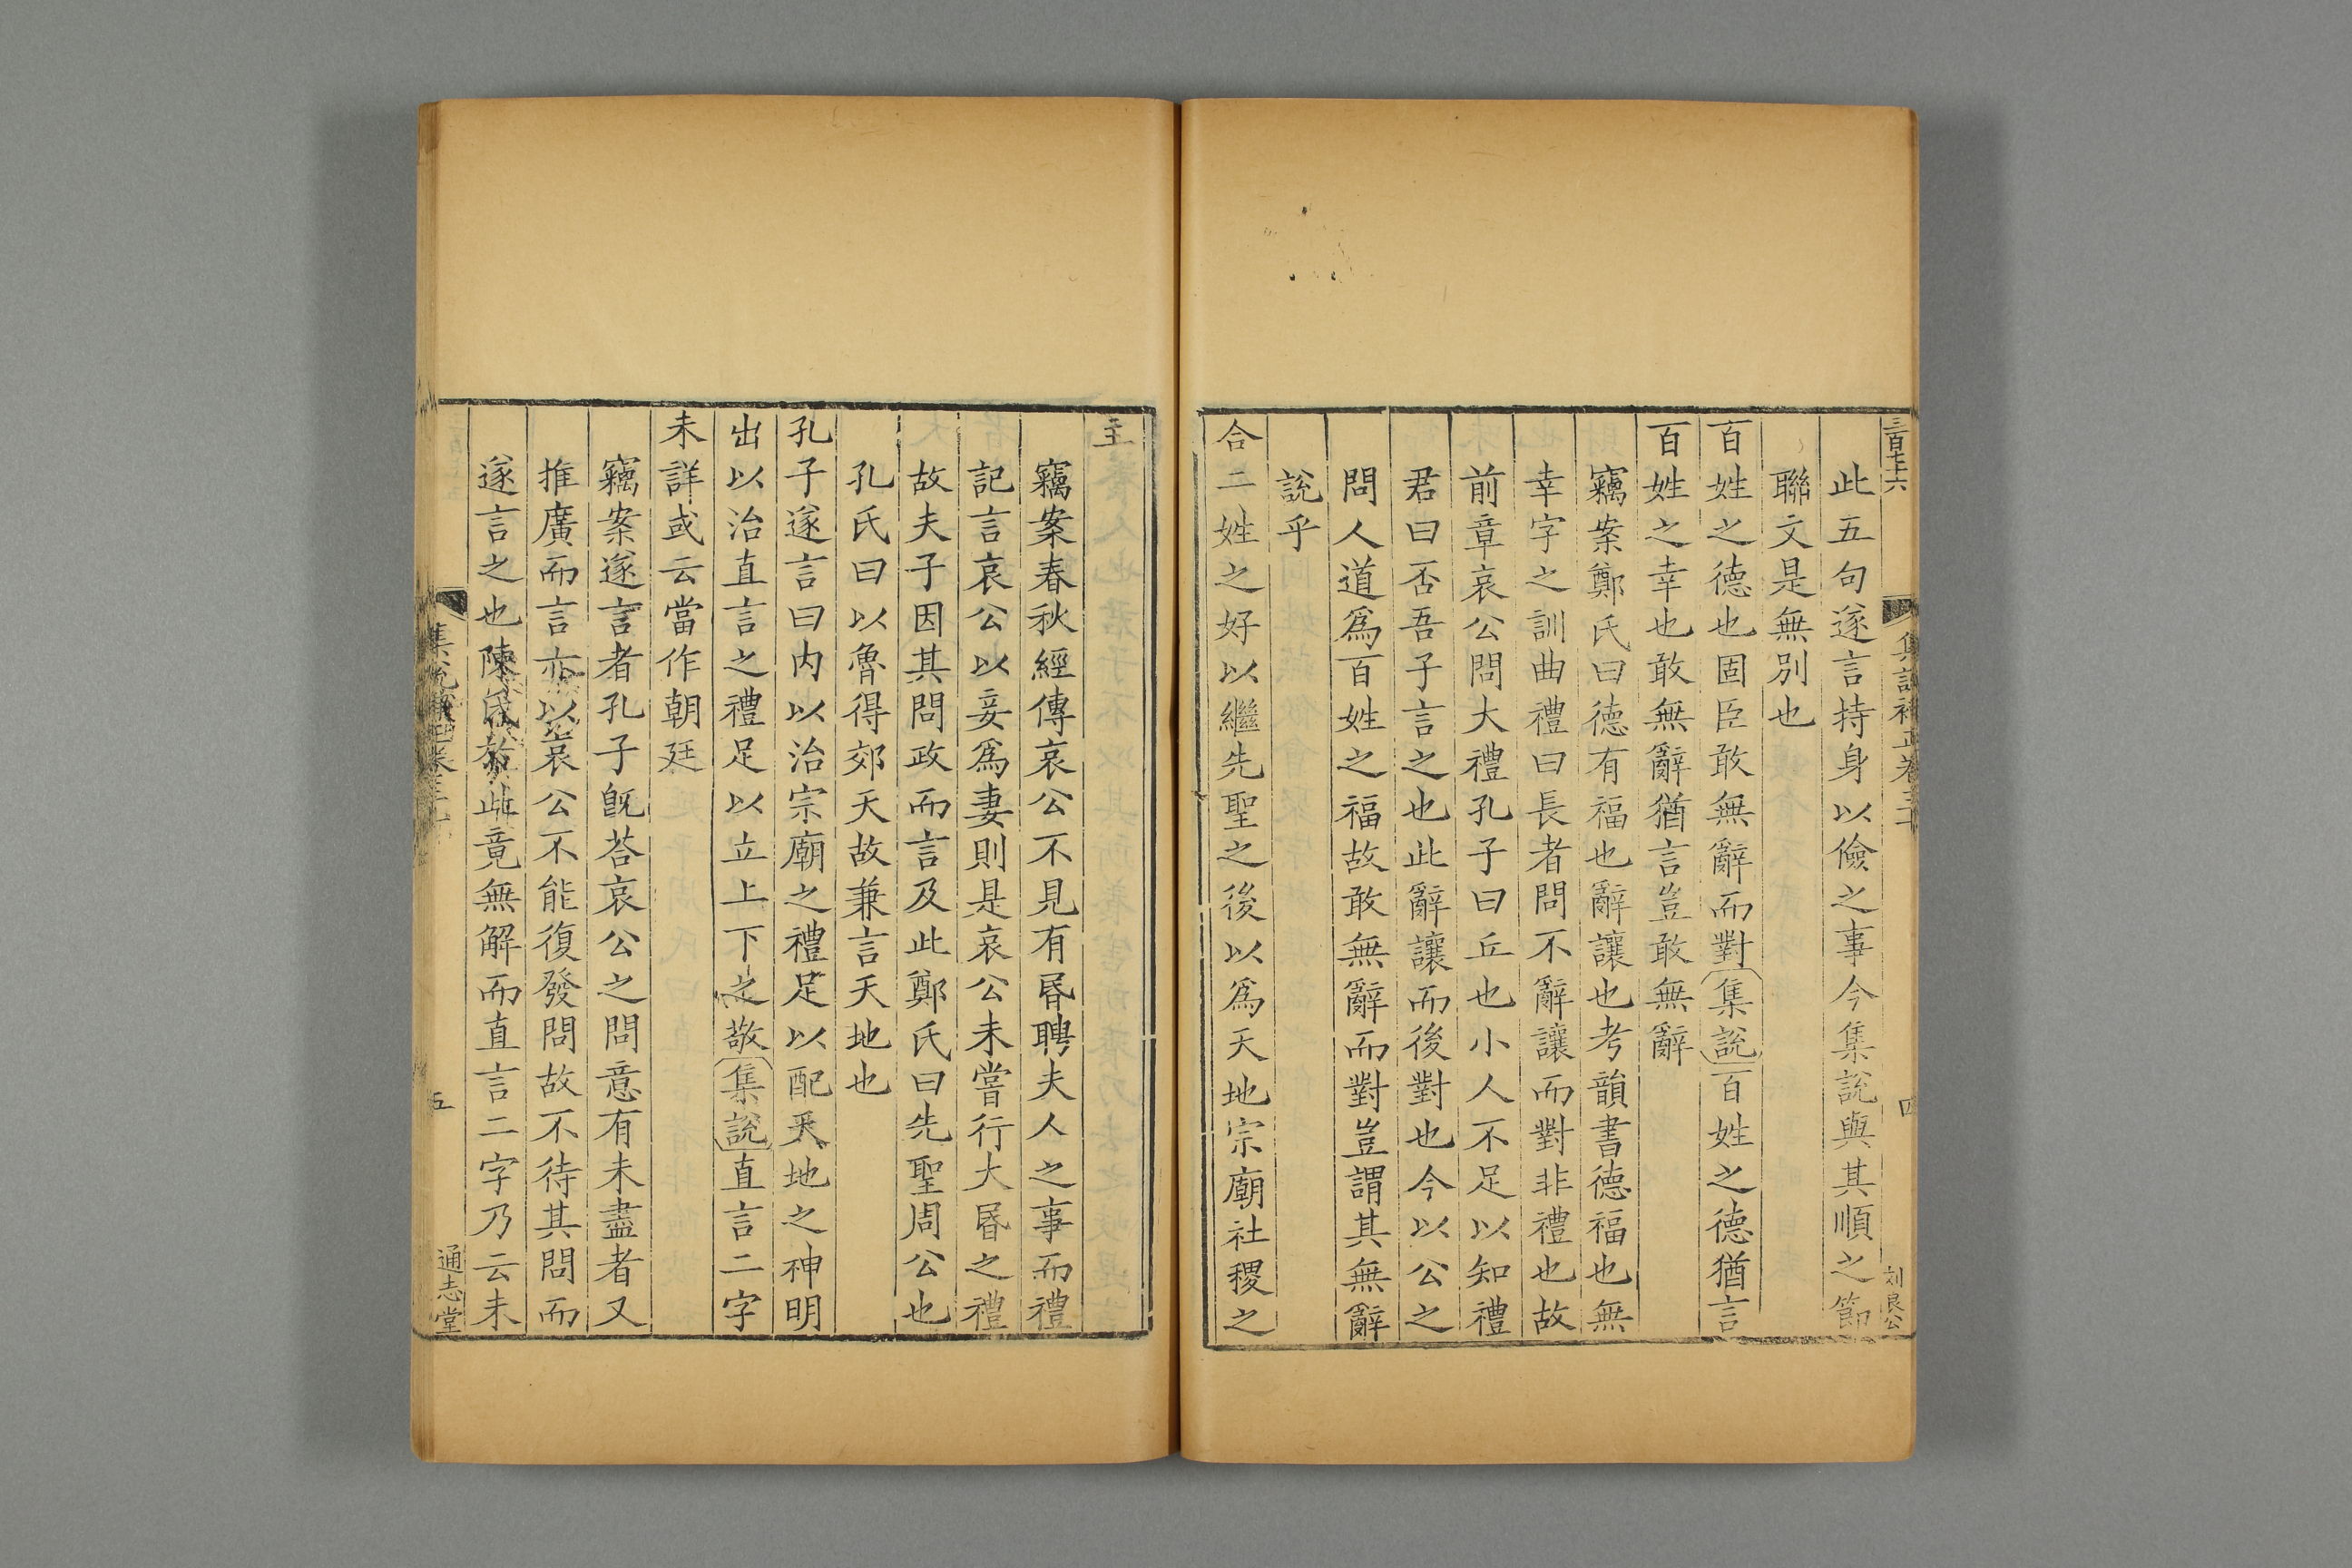 三百七十六
集說補正卷三十
四
刘良公
此五句遂言持身以儉之事今集說與其順之節
聯文是無別也
百姓之德也固臣敢無辭而對集說百姓之德猶言
百姓之幸也敢無辭猶言豈敢無辭
竊案鄭氏曰德有福也辭讓也考韻書德福也無
幸字之訓曲禮曰長者問不辭讓而對非禮也故
前章哀公問大禮孔子曰丘也小人不足以知禮
君曰否吾子言之也此辭讓而後對也今以公之
問人道爲百姓之福故敢無辭而對豈謂其無辭
說乎
合二姓之好以繼先聖之後以爲天地宗廟社稷之
主
竊案春秋經傳哀公不見有昬聘夫人之事而禮
記言哀公以妾爲妻則是哀公未嘗行大昬之禮
故夫子因其問政而言及此鄭氏曰先聖周公也
孔氏曰以魯得郊天故兼言天地也
孔子遂言曰內以治宗廟之禮足以配天地之神明
出以治直言之禮足以立上下之敬集說直言二字
未詳或云當作朝廷
竊案遂言者孔子旣荅哀公之問意有未盡者又
推廣而言亦以哀公不能復發問故不待其問而
遂言之也陳氏於此竟無解而直言二字乃云未
五
通志堂